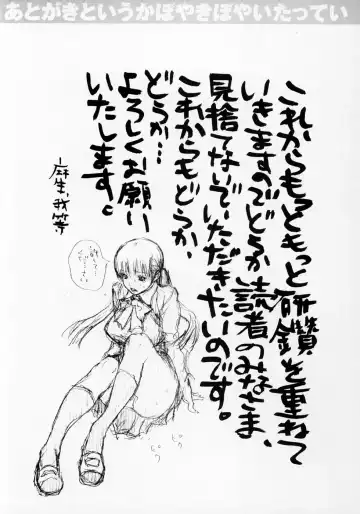 あとがきというかぼやきぼやいたってい
これからもっともっと研鑽を重ねて
いきますのでどうか読者のみなさま、
見捨てないでいただきたいのです。
これからもどうか、
どうか…
よろしくお願い
いたします。
麻生我等
ビク
ビク